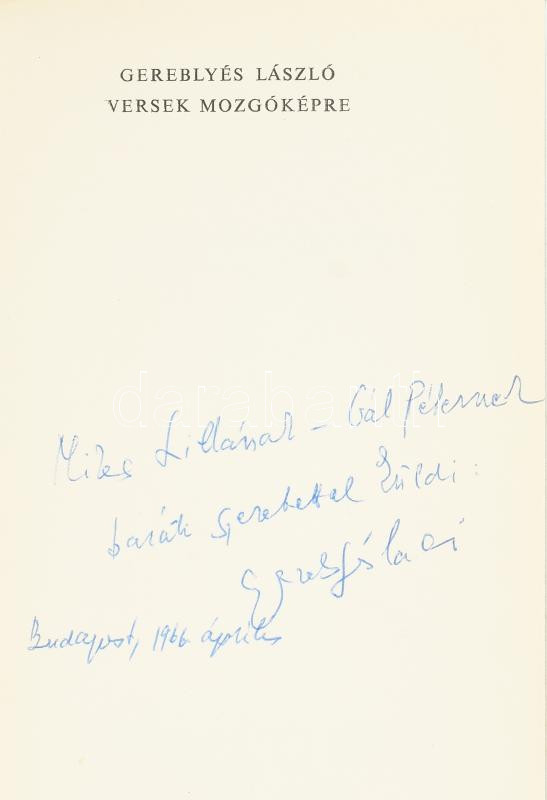 GEREBLYÉS LÁSZLÓ
VERSEK MOZGÓKÉPRE
darabanth
Mikes Lillának – Gál Péternek
baráti szeretettel küldi:
Gereblyés Laci
Budapest, 1966 április